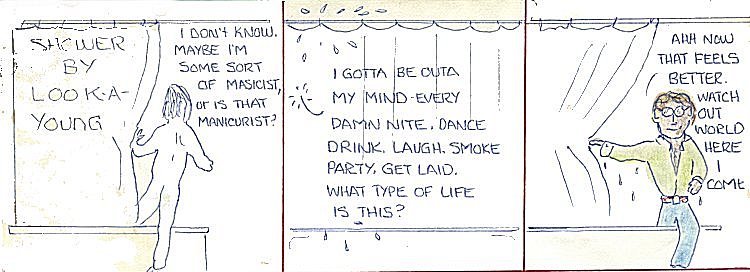 SHOWER
BY
LOOK-A-
YOUNG
I DON'T KNOW.
MAYBE I'M
SOME SORT
OF MASICIST,
OR IS THAT
MANICURIST?
I GOTTA BE OUTA
MY MIND-EVERY
DAMN NITE. DANCE
DRINK, LAUGH, SMOKE
PARTY, GET LAID.
WHAT TYPE OF LIFE
IS THIS?
AHH NOW
THAT FEELS
BETTER.
WATCH
OUT
WORLD
HERE
I
COME